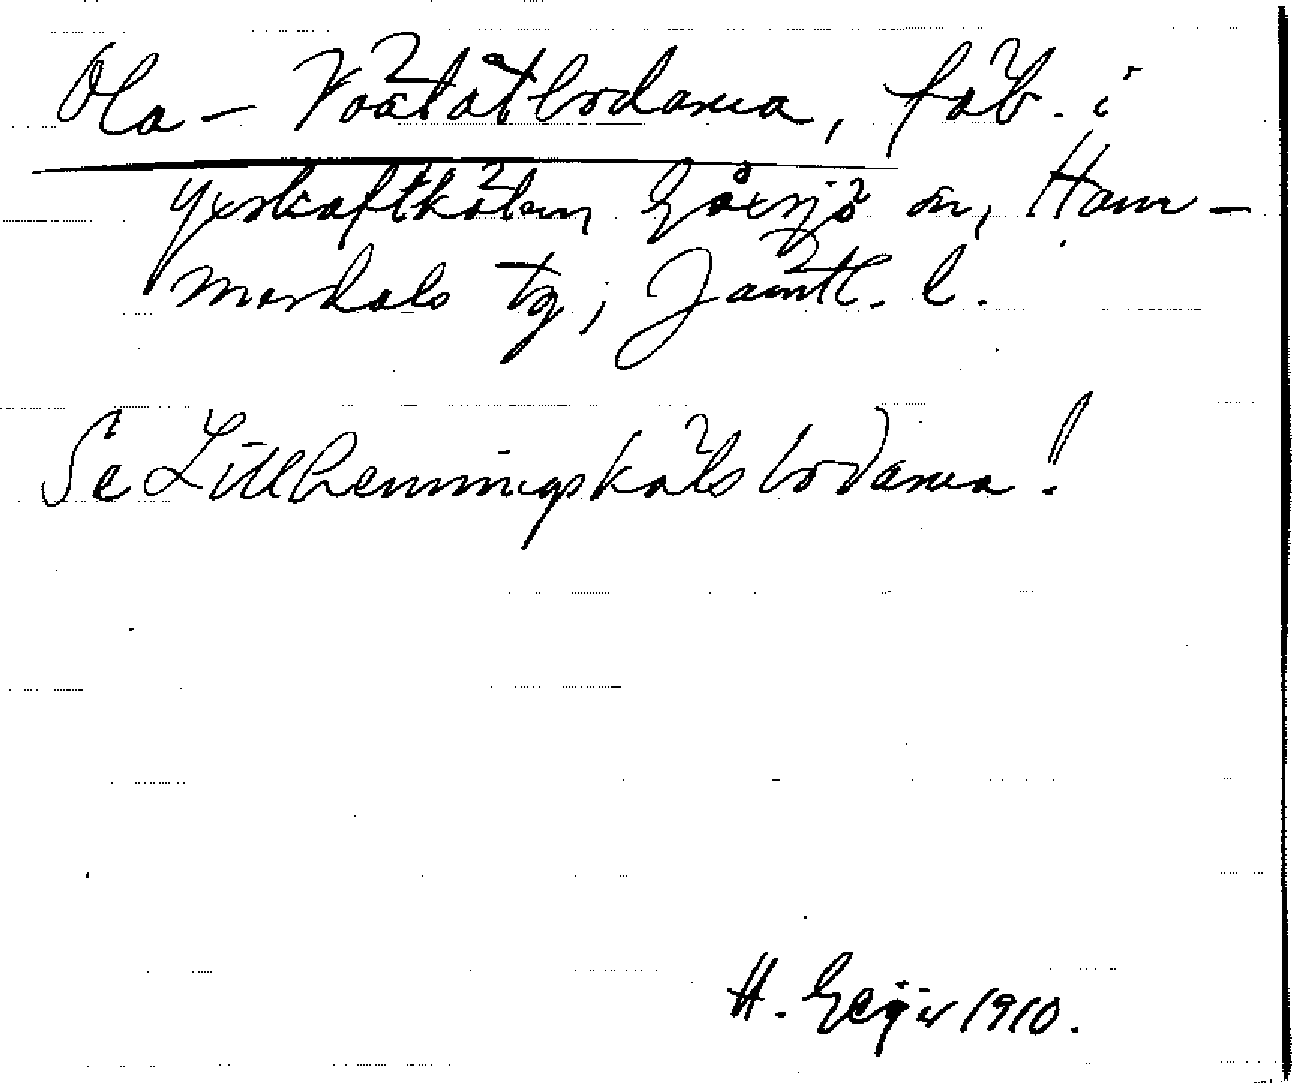 Ola-Våtåtbodarna, fäb. i
Yxskaftkälen, Gåxsjö sn, Ham-
merdals tg, Jämtl. l.
Se Lillhenningskälsbodarna!
H. Geijer 1910.